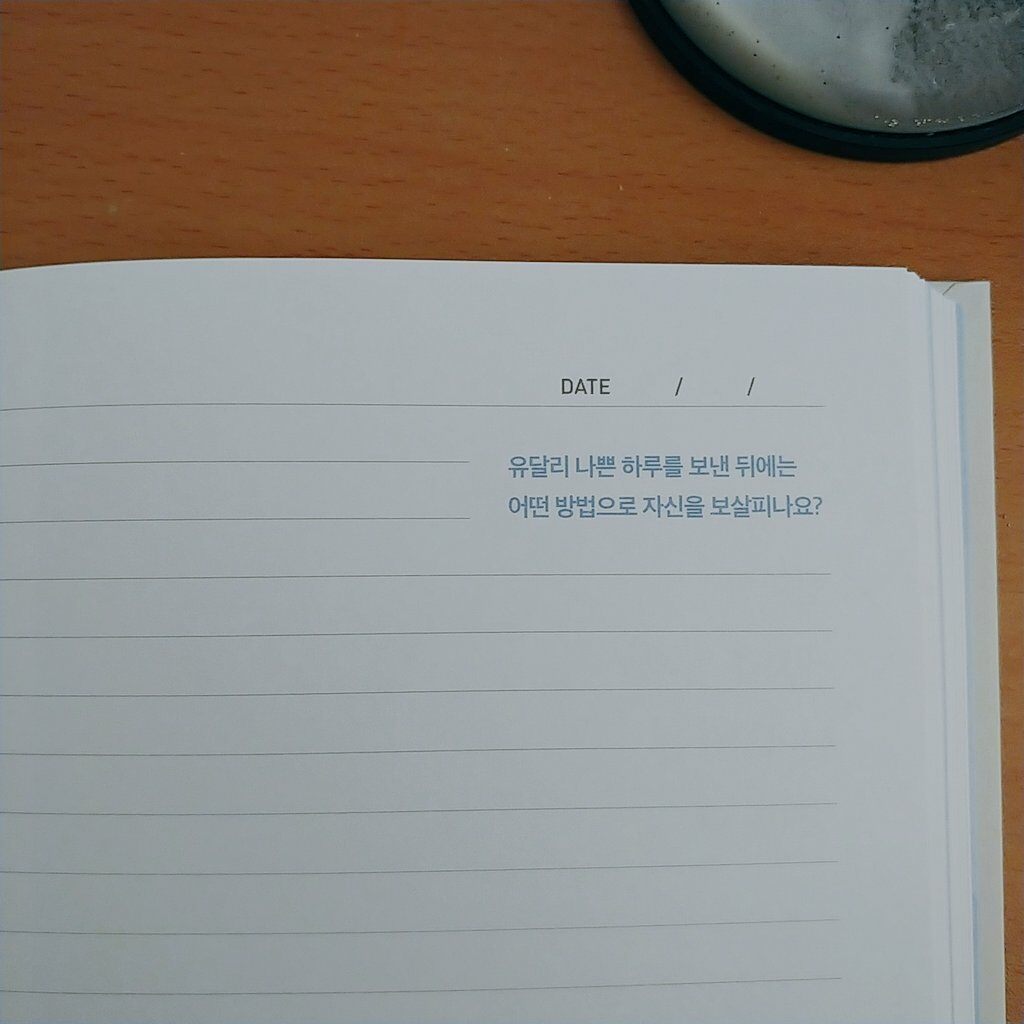 DATE / /
유달리 나쁜 하루를 보낸 뒤에는
어떤 방법으로 자신을 보살피나요?